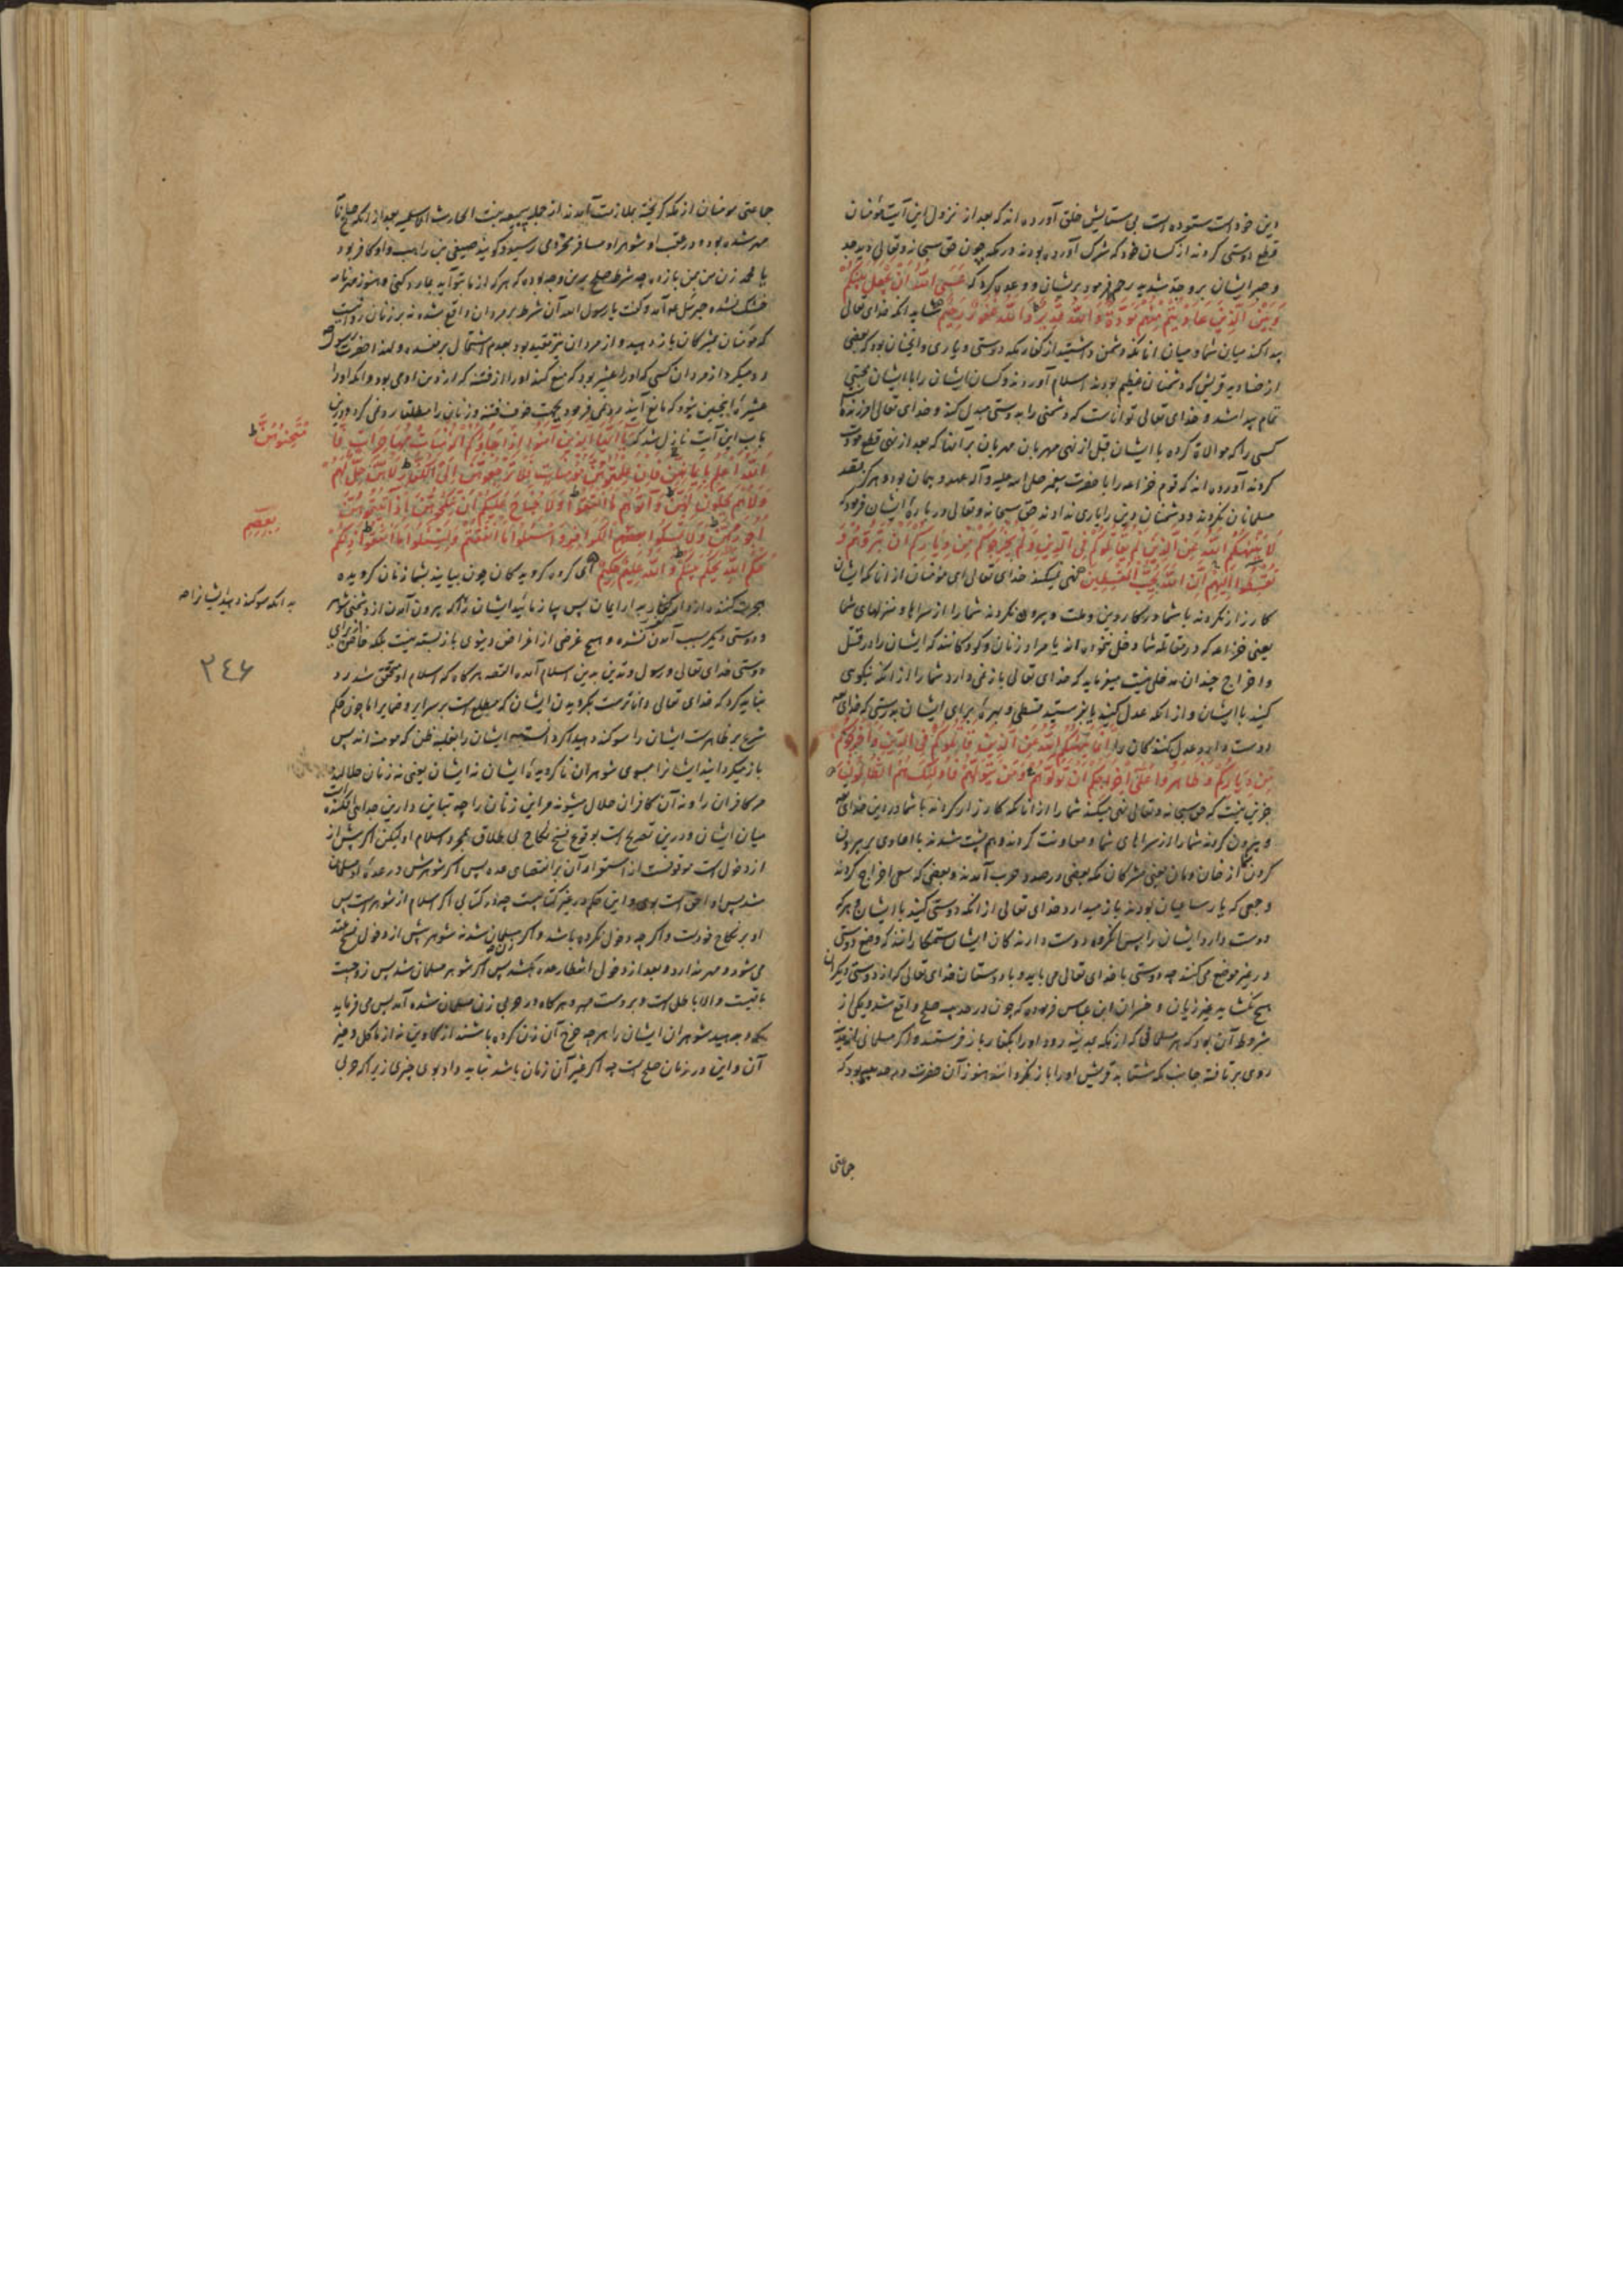 دین خود است ستوده است بی ستایش خلق آورده اند که بعد از نزول این آیت مؤمنان
قطع دوستی کردند از کسان خود که شرک آورده بودند در مکه چون حق سبحانه و تعالی دید جد
و جبر ایشان بر وجد شدید رحم فرمود بر ایشان و وعده کرد که عَسَى اللهُ أَنْ يَجْعَلَ بَيْنَكُمْ
وَبَيْنَ الَّذِينَ عَادَيْتُمْ مِنْهُمْ مَوَدَّةً وَاللهُ قَدِيرٌ وَاللهُ غَفُورٌ رَحِيمٌ شاید آنکه خدای تعالی
پیدا کند میان شما و میان آنانکه دشمن داشتید از کفار مکه دوستی و یاری و آنچنان بود که بعضی
از صنادید قریش که دشمنان عظیم بودند اسلام آوردند و کسان ایشان را با ایشان محبتی
تمام پیدا شد و خدای تعالی تواناست که دشمنی را به دوستی مبدل کند و خدای تعالی آمرزنده
کسی را که موالاة کرده با ایشان قبل از نهی مهربان مهربان بر آنها که بعد از نهی قطع مودت
کردند آورده اند که قوم خزاعه را با حضرت پیغمبر صلی الله علیه و آله عهد و پیمان بود و هرگز قصد
مسلمانان نکردند و دشمنان دین را یاری ندادند حق سبحانه و تعالی در باره ایشان فرمود که
لَا يَنْهَاكُمُ اللهُ عَنِ الَّذِينَ لَمْ يُقَاتِلُوكُمْ فِي الدِّينِ وَلَمْ يُخْرِجُوكُمْ مِنْ دِيَارِكُمْ أَنْ تَبَرُّوهُمْ وَ
تُقْسِطُوا إِلَيْهِمْ إِنَّ اللهَ يُحِبُّ الْمُقْسِطِينَ نهی نمیکند خدای تعالی ای مؤمنان از آنانکه ایشان
کارزار نکردند با شما در کار دین و ملت و بیرون نکردند شما را از سراها و منزلهای شما
یعنی خزاعه که در مقاتله شما دخل نخوده اند یا مراد زنان و کودکانند که ایشان را در قتل
و اخراج چندان مدخلی نیست میفرماید که خدای تعالی باز نمی دارد شما را از آنکه نیکوی
کنید با ایشان و از آنکه عدل کنید یا بفرستید قسطی و بهره برای ایشان بدرستی که خدای
دوست دارد عدل کنندگان را إِنَّمَا يَنْهَاكُمُ اللهُ عَنِ الَّذِينَ قَاتَلُوكُمْ فِي الدِّينِ وَأَخْرَجُوكُمْ
مِنْ دِيَارِكُمْ وَظَاهَرُوا عَلَى إِخْرَاجِكُمْ أَنْ تَوَلَّوْهُمْ وَمَنْ يَتَوَلَّهُمْ فَأُولَئِكَ هُمُ الظَّالِمُونَ
جز این نیست که حق سبحانه و تعالی نهی میکند شما را از آنانکه کارزار کردند با شما در دین خدای
و بیرون کردند شما را از سراهای شما و معاونت کردند و هم پشت شدند با اعادی بر بیرون
کردن از خان و مان یعنی مشرکان مکه بعضی در صدد حرب آمدند و بعضی که سعی اخراج کردند
و جمعی که یار ساعیان بودند باز میدارد خدای تعالی از آنکه دوستی کنید با ایشان و هر که
دوست دارد ایشان را پس آنگروه دوست دارندگان ایشان ستمکارانند که وضع دوستی
در غیر موضع می کنند چه دوستی با خدای تعالی می باید و با دوستان خدای تعالی که از دوستی دیگران
هیچ نکشاید غیر زیان و خسران ابن عباس فرموده که چون در حدیبیه صلح واقع شد و یکی از
شروط آن بود که هر مسلمانی که از مکه بمدینه رود او را بکفار باز فرستند و اگر مسلمانی از مدینه
روی بر تافته جانب مکه شتابد قریش او را باز نگردانند هنوز آن حضرت در حدیبیه بود که
جماعتی
جماعتی مومنان از مکه گریخته بملازمت آمدند از جمله سبیعه بنت الحارث الاسلمیه بعد از آنکه صلح نامه
مهر شده بود و در عقب او شوهر او مسافر مخزومی رسید و گویند صیفی بن راهب و او کافر بود
یا محمد زن من بمن باز ده چه شرط صلح برین وجه بوده که هر که از ما بتو آید بما رد کنی و هنوز مهر نامه
خشک نشده جبرئیل ع آمد و گفت یا رسول الله آن شرط بر مردان واقع شده نه بر زنان روا نیست
که مؤمنان بمشرکان باز دهید و از مردان نیز مقید بود بعدم اشتمال بر مفسده و لهذا حضرت رسول
رد میکرد از مردان کسی که او را عشیره بود که منع کنند او را از فتنه که از دین او می بود و آنکه او را
عشیره اینچنین نبود که مانع آیند رد نمی فرمود بجهت خوف فتنه و زنان را مطلقا رد نمی کرد و درین
باب این آیت نازل شد که يَا أَيُّهَا الَّذِينَ آمَنُوا إِذَا جَاءَكُمُ الْمُؤْمِنَاتُ مُهَاجِرَاتٍ فَا
مْتَحِنُوهُنَّ
اللهُ أَعْلَمُ بِإِيمَانِهِنَّ فَإِنْ عَلِمْتُمُوهُنَّ مُؤْمِنَاتٍ فَلَا تَرْجِعُوهُنَّ إِلَى الْكُفَّارِ لَا هُنَّ حِلٌّ لَهُمْ
وَلَا هُمْ يَحِلُّونَ لَهُنَّ وَآتُوهُمْ مَا أَنْفَقُوا وَلَا جُنَاحَ عَلَيْكُمْ أَنْ تَنْكِحُوهُنَّ إِذَا آتَيْتُمُوهُنَّ
أُجُورَهُنَّ وَلَا تُمْسِكُوا بِعِصَمِ الْكَوَافِرِ وَاسْأَلُوا مَا أَنْفَقْتُمْ وَلْيَسْأَلُوا مَا أَنْفَقُوا ذَلِكُمْ
بِعِصَمِ
حُكْمُ اللهِ يَحْكُمُ بَيْنَكُمْ وَاللهُ عَلِيمٌ حَكِيمٌ ای گروه گرویدگان چون بیایند بشما زنان گرویده
هجرت کنند از دار کفار بدار ایمان پس بیازمائید ایشان را که بیرون آمدن از دشمنی شوهر
به آنکه سوگند دهید ایشانرا که
و دوستی دیگر سبب آمدن نشده و هیچ غرضی از اغراض دنیوی باز بسته نیست بلکه خاص از برای
دوستی خدای تعالی و رسول و تدین بدین اسلام آمده القصه هرگاه که اسلام او محقق شد رد
٣٤٦
نباید کرد که خدای تعالی داناترست بگرویدن ایشان که مطلع است بر سرایر و ضمایر اما چون حکم
شرع بر ظاهرست ایشان را سوگند دهید اگر دانستید ایشان را بغلبه ظن که مومنه اند پس
باز میگردانید ایشانرا بسوی شوهران ناگرویده ایشان نه ایشان یعنی نه زنان حلالند
مر کافران را و نه آن کافران حلال میشوند مر این زنان را چه تباین دارین جدایی افکنده
میان ایشان و درین تصریح است بوقوع فسخ نکاح بی طلاق بمجرد اسلام او لیکن اگر پیش از
از دخول است موقوفست استمرار آن بر انقضای عده پس اگر شوهرش در عده او مسلمان
شد پس او احق است بوی و این حکم در غیر کتابیست چه اگر کتابی اگر اسلام از شوهر است پس
او بر نکاح خودست و اگر چه دخول نکرده باشد و اگر مسلمان شدند شوهرش از دخول فسخ عقد
می شود و مهر ندارد و بعد از دخول انتظار عده بکشد پس اگر شوهر مسلمان شد پس زوجیت
باقیست و الا باطل است و بر دوست مهر و هرگاه در حربی زن مسلمان شده آمد پس می فرماید
که و بدهید شوهران ایشان را هر چه خرج آن زن کرده باشند از کاوین نه از ماکل و غیر
آن و این در زمان صلح است چه اگر غیر آن زمان باشد نباید داد بوی چیزی زیرا که حربی